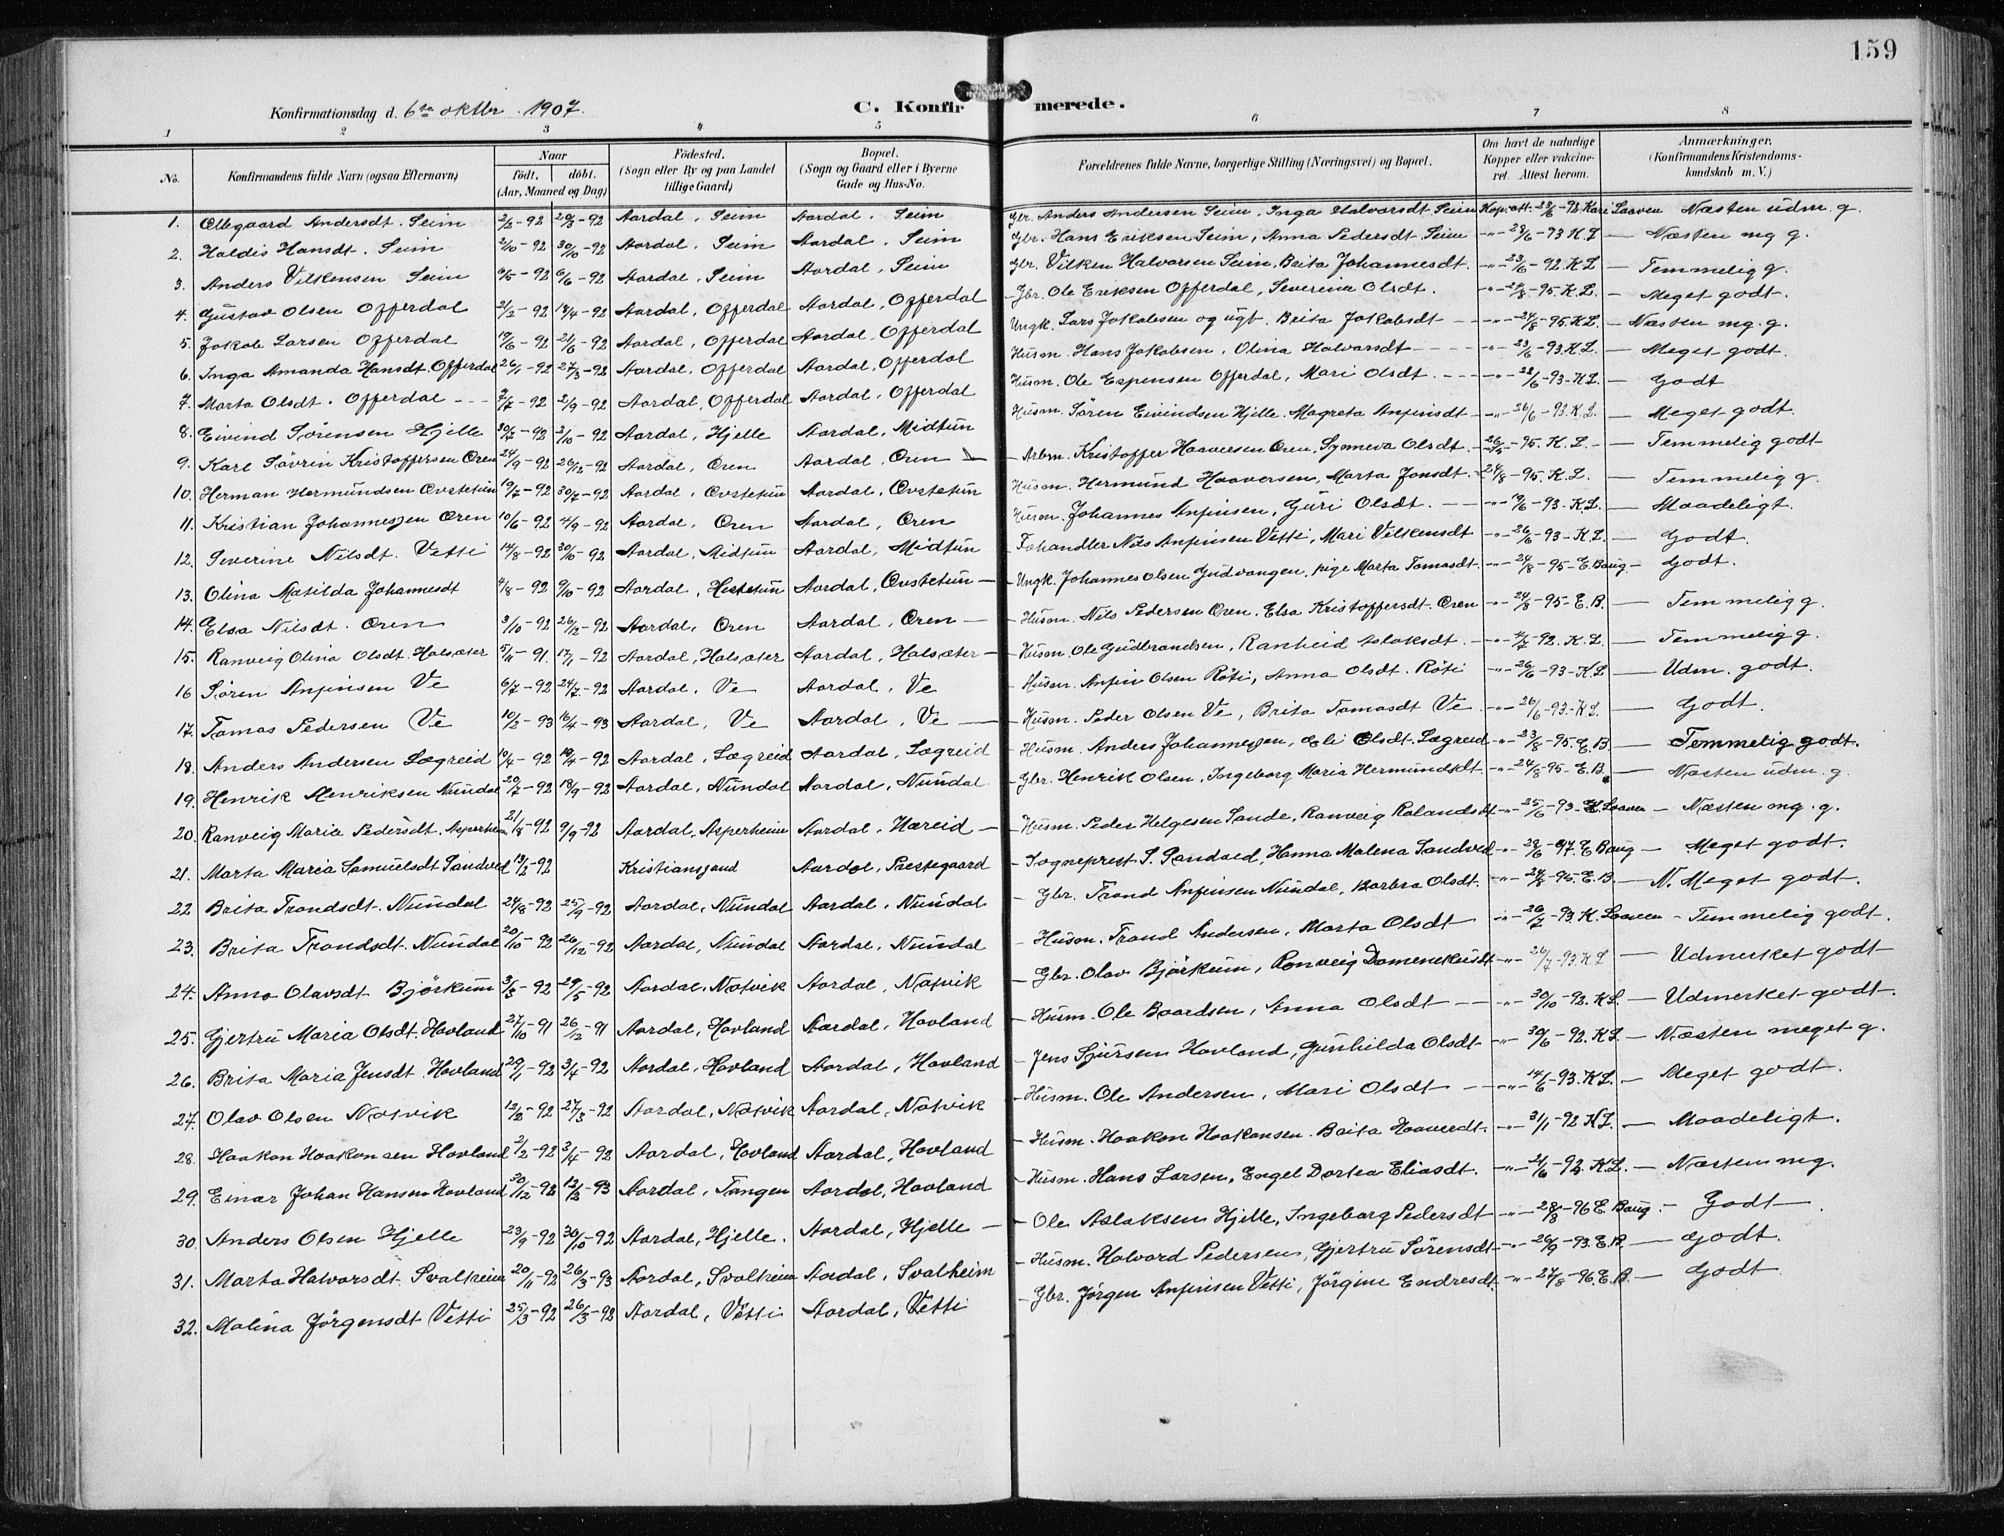 159
Konfirmationsdag d. 6te oktbr. 1907.
C. Konfirmerede.
1 2 3 4 5 6 7 8
No. Konfirmandens fulde Navn (ogsaa Efternavn) Naar født. døbt. (Aar, Maaned og Dag) Fødested. (Sogn eller By og paa Landet tillige Gaard) Bopæl. (Sogn og Gaard eller i Byerne Gade og Hus-No. Forældrenes fulde Navne, borgerlige Stilling (Næringsvei) og Bopæl. Om havt de naturlige Kopper eller vakcineret. Attest herom. Anmærkninger. (Konfirmandens Kristendomskundskab m. V.)
1. Ollegaard Andersdt. Seim 2/2-92 20/3-92 Aardal, Seim Aardal, Seim Gbr. Anders Andersen Seim, Inga Halvorsdt Seim Kop. att. 23/6-92 Kari Laaven Næsten udm. g.
2. Haldis Hansdt. Seim 2/10-92 30/10-92 Aardal, Seim Aardal, Seim Gbr. Hans Eriksen Seim, Anna Pedersdt. Seim -"- 28/6-93 K.L. — Næsten mg g.
3. Anders Vilkensen Seim 6/5-92 6/6-92 Aardal, Seim Aardal, Seim Gbr. Vilken Halvorsen Seim, Brita Johannesdt. -"- 23/6-92. K.L — Temmelig g.
4. Gustav Olsen Offerdal 2/2-92 18/4-92 Aardal, Offerdal Aardal, Offerdal Gbr. Ole Eriksen Offerdal, Severina Olsdt. -"- 24/8-95. K.L. — Meget godt.
5. Jakob Larsen Offerdal 19/6-92 21/6-92 Aardal, Offerdal Aardal, Offerdal Ungk. Lars Jakobsen og ugt. Brita Jakobsdt -"- 24/8-95. K.L. — Næsten mg. g.
6. Inga Amanda Hansdt. Offerdal 26/1-92 27/3-92 Aardal, Offerdal Aardal, Offerdal Husm. Hans Jakobsen, Olina Halvorsdt -"- 23/6-93. K.L. — Meget godt.
7. Marta Olsdt. Offerdal 7/7-92 2/9-92 Aardal, Offerdal Aardal, Offerdal Husm. Ole Espensen Offerdal, Mari Olsdt. -"- 28/6-93-K.L. — Godt
8. Eivind Sørensen Hjelle 30/7-92 2/10-92 Aardal, Hjelle Aardal, Midtun Husm. Søren Eivindsen Hjelle. Magreta Anfinsdt -"- 26/6-93. K.L. — Meget godt.
9. Karl Søvrin Kristoffersen Øren 24/9-92 26/12-92 Aardal, Øren Aardal, Øren Arbm. Kristoffer Haaversen Øren, Synneva Olsdt. -95. K.L. — Temmelig godt
10. Herman Hermundsen Øvstetun 19/7-92 30/7-92 Aardal, Øvstetun Aardal, Øvstetun Husm. Hermund Haaversen, Marta Jonsdt. 24/8-95. K.L. — Temmelig g.
11. Kristian Johannessen Øren 10/6-92 4/9-92 Aardal, Øren Aardal, Øren Husm. Johannes Anfinsen, Guri Olsdt. -"- 19/6-93. K.L. — Maadeligt.
12. Severine Nilsdt. Vetti 14/8-92 30/10-92 Aardal, Midtun Aardal, Midtun Fæhandler Nils Anfinsen Vetti, Mari Vilkensdt -"- 26/6-93-K.L. — Godt.
13. Olina Matilda Johannesdt 4/8-92 9/10-92 Aardal, Hestetun Aardal, Øvstetun Ungk. Johannes Olsen Gudvangen, pige Marta Tomasdt. -"- 24/8-95-E. Baug — Godt.
14. Elsa Nilsdt. Øren 3/10-92 26/12-92 Aardal, Øren Aardal, Øren Husm. Nils Pedersen Øren, Elsa Kristoffersdt. Øren -"- 24/8-95-E.B. — Temmelig g.
15. Ranveig Olina Olsdt. Halsæter 5/11-91. 17/1-92 Aardal, Halsæter Aardal, Halsæter Husm. Ole Gudbrandsen, Ranheid Aslaksdt. -"- 4/7-92. K.L. — Temmelig g.
16 Søren Anfinsen Ve 6/7-92 24/7-92 Aardal, Ve Aardal, Ve Husm. Anfin Olsen Røti, Anna Olsdt. Røti -"- 26/6-93-K.L — Udm. godt.
17. Tomas Pedersen Ve 10/2-93 16/4-93 Aardal, Ve Aardal, Ve Husm. Peder Olsen Ve, Brita Tomasdt Ve -"- 26/6-93. K.L. — Godt.
18. Anders Andersen Lægreid 10/4-92 19/4-92 Aardal, Lægreid Aardal, Lægreid Husm. Anders Johannessen, Eli Olsdt. Lægreid -"- 23/8-95. E.B. — Temmelig godt.
19. Henrik Henriksen Nundal 20/7-92 18/9-92 Aardal, Nundal Aardal, Nundal Gbr. Henrik Olsen, Ingeborg Maria Hermundsdt. -"- 24/8-95-E.B. — Næsten udm. g.
20. Ranveig Maria Pedersdt. Asperheim 21/8-92 9/9-92 Aardal, Asperheim Aardal, Hæreid Husm. Peder Helgesen Sande, Ranveig Rolandsdt -"- 25/6-93. K. Laaven — Næsten mg. g.
21. Marta Maria Samuelsdt Sandved 13/2-92 Kristianssand Aardal, Prestegaard Sogneprest S. Sandved, Hanna Malena Sandved -"- 28/6-97. E Baug — Meget godt.
22 Brita Trondsdt. Nundal 24/8-92 25/9-92 Aardal, Nundal Aardal, Nundal Gbr. Trond Anfinsen Nundal, Barbra Olsdt. -"- 24/8-95. E.B. — N. Meget godt.
23. Brita Trondsdt. Nundal 20/10-92 26/12-92 Aardal, Nundal Aardal, Nundal Husm. Trond Andersen, Marta Olsdt -"- 26/7-93. K. Laaven - Temmelig godt.
24. Anna Olavsdt Bjørkum 3/3-92 29/5-92 Aardal, Natvik Aardal, Natvik Gbr. Olav Bjørkum, Ronveig -"- 26/7-93. K.L — Udmerket godt
25. Gjertru Maria Olsdt. Hovland 27/10-91 26/12-91 Aardal, Hovland Aardal, Hovland Husm. Ole Baardsen, Anna Olsdt -"- 30/10-92. K.L. — Udmerket godt.
26. Brita Maria Jensdt. Hovland 29/1-92 3/4-92 Aardal, Hovland Aardal, Hovland Jens Sjursen Hovland, Gunhilda Olsdt. -"- 30/6-92. K.L. — Næsten meget g.
27. Olav Olsen Natvik 12/2-92 27/3-92 Aardal, Natvik Aardal, Natvik Husm. Ole Andersen, Mari Olsdt -"- 14/6-93. K.L. — Meget godt.
28. Haakon Haakonsen Hovland 2/2-92 3/4-92 Aardal, Hovland Aardal, Hovland Husm. Haakon Haakonsen. Brita Haaverdt. -"- 31/1-92 K.L. — Maadeligt.
29. Einar Johan Hansen Hovland 30/12-92 12/2-93 Aardal, Tangen Aardal, Hovland Husm. Hans Larsen, Engel Dortea Eliasdt. -"- K.L. — Næsten mg.
30. Anders Olsen Hjelle 23/9-92 30/10-92 Aardal, Hjelle. Aardal, Hjelle Ole Aslaksen Hjelle, Ingeborg Pedersdt -"- 28/8-96 E. Baug. — Godt
31. Marta Halvorsdt. Svalheim 20/11-92 26/3-93 Aardal, Svalheim Aardal, Svalheim Husm. Halvard Pedersen, Gjertru Sørensdt -"- 26/9-93. E.B. — Godt.
32. Malina Jørgensdt Vetti 25/3-92 26/3-92 Aardal, Vetti Aardal, Vetti Gbr. Jørgen Anfinsen Vetti, Jørgine Endresdt. -"- 27/8-96. E.B. — Godt